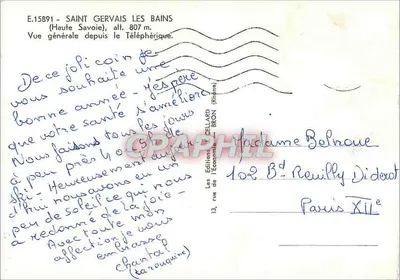 E.15891 - SAINT GERVAIS LES BAINS
(Haute Savoie), alt. 807 m.
Vue générale depuis le Téléphérique.
De ce joli coin je
vous souhaite une
bonne année - J'espère
que votre santé s'améliore
Nous faisons tous les jours
à peu près 4 h 5 de
ski. Heureusement aujour
d'hui nous avons eu un
peu de soleil ce qui nous
a redonné de la joie -
Avec toute mon
affection je vous
embrasse
Chantal
(La rouquine)
Les Editions CELLARD
13, rue de l'Economie - BRON (Rhône)
DRAPHIL
Madame Belnoue
102 Bd Reuilly Diderot
Paris XIIe